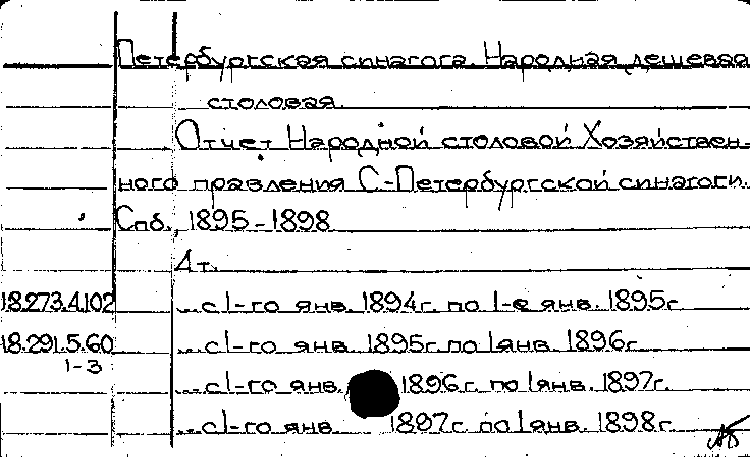 Петербургская синагога. Народная дешевая
столовая.
Отчет Народной столовой Хозяйствен-
ного правления С-Петербургской синагоги.
Спб., 1895-1898
4 т.
18.273.4.102 ...с 1-го янв. 1894г. по 1-е янв. 1895г.
18.291.5.60 ...с 1-го янв. 1895г. по 1 янв. 1896г.
1-3
...с 1-го янв. 1896г. по 1 янв. 1897г.
...с 1-го янв. 1897г. по 1 янв. 1898г.